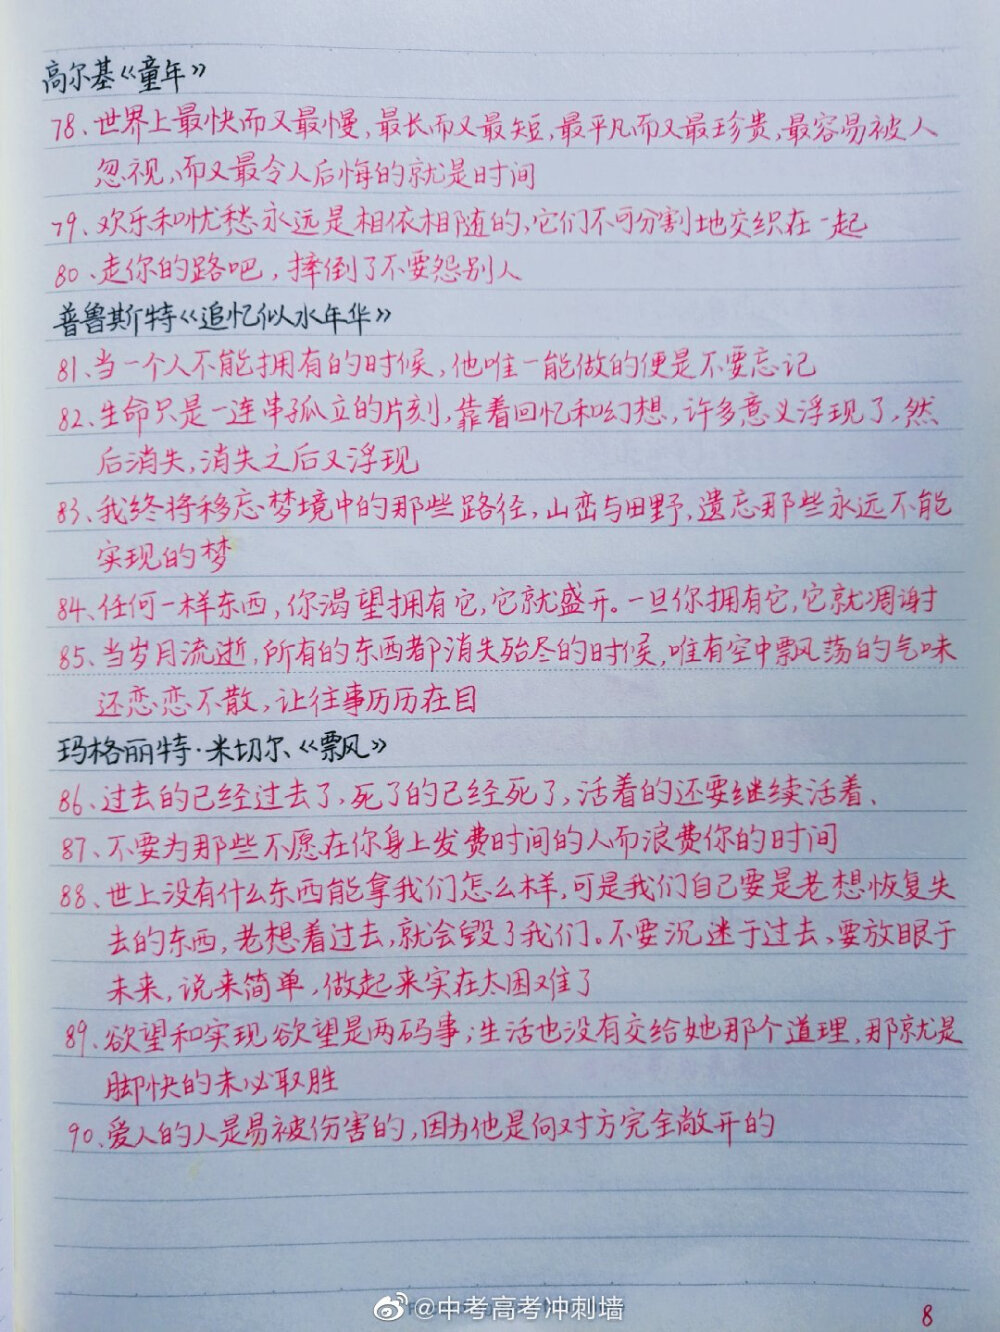 高尔基《童年》
78、世界上最快而又最慢,最长而又最短,最平凡而又最珍贵,最容易被人
忽视,而又最令人后悔的就是时间
79、欢乐和忧愁永远是相依相随的,它们不可分割地交织在一起
80、走你的路吧,摔倒了不要怨别人
普鲁斯特《追忆似水年华》
81、当一个人不能拥有的时候,他唯一能做的便是不要忘记
82、生命只是一连串孤立的片刻,靠着回忆和幻想,许多意义浮现了,然
后消失,消失之后又浮现
83、我终将移忘梦境中的那些路径,山峦与田野,遗忘那些永远不能
实现的梦
84、任何一样东西,你渴望拥有它,它就盛开。一旦你拥有它,它就凋谢
85、当岁月流逝,所有的东西都消失殆尽的时候,唯有空中飘荡的气味
还恋恋不散,让往事历历在目
玛格丽特·米切尔《飘》
86、过去的已经过去了,死了的已经死了,活着的还要继续活着、
87、不要为那些不愿在你身上发费时间的人而浪费你的时间
88、世上没有什么东西能拿我们怎么样,可是我们自己要是老想恢复失
去的东西,老想着过去,就会毁了我们。不要沉迷于过去、要放眼于
未来,说来简单,做起来实在太困难了
89、欲望和实现欲望是两码事;生活也没有交给她那个道理,那就是
脚快的未必取胜
90、爱人的人是易被伤害的,因为他是向对方完全敞开的
@中考高考冲刺墙
8